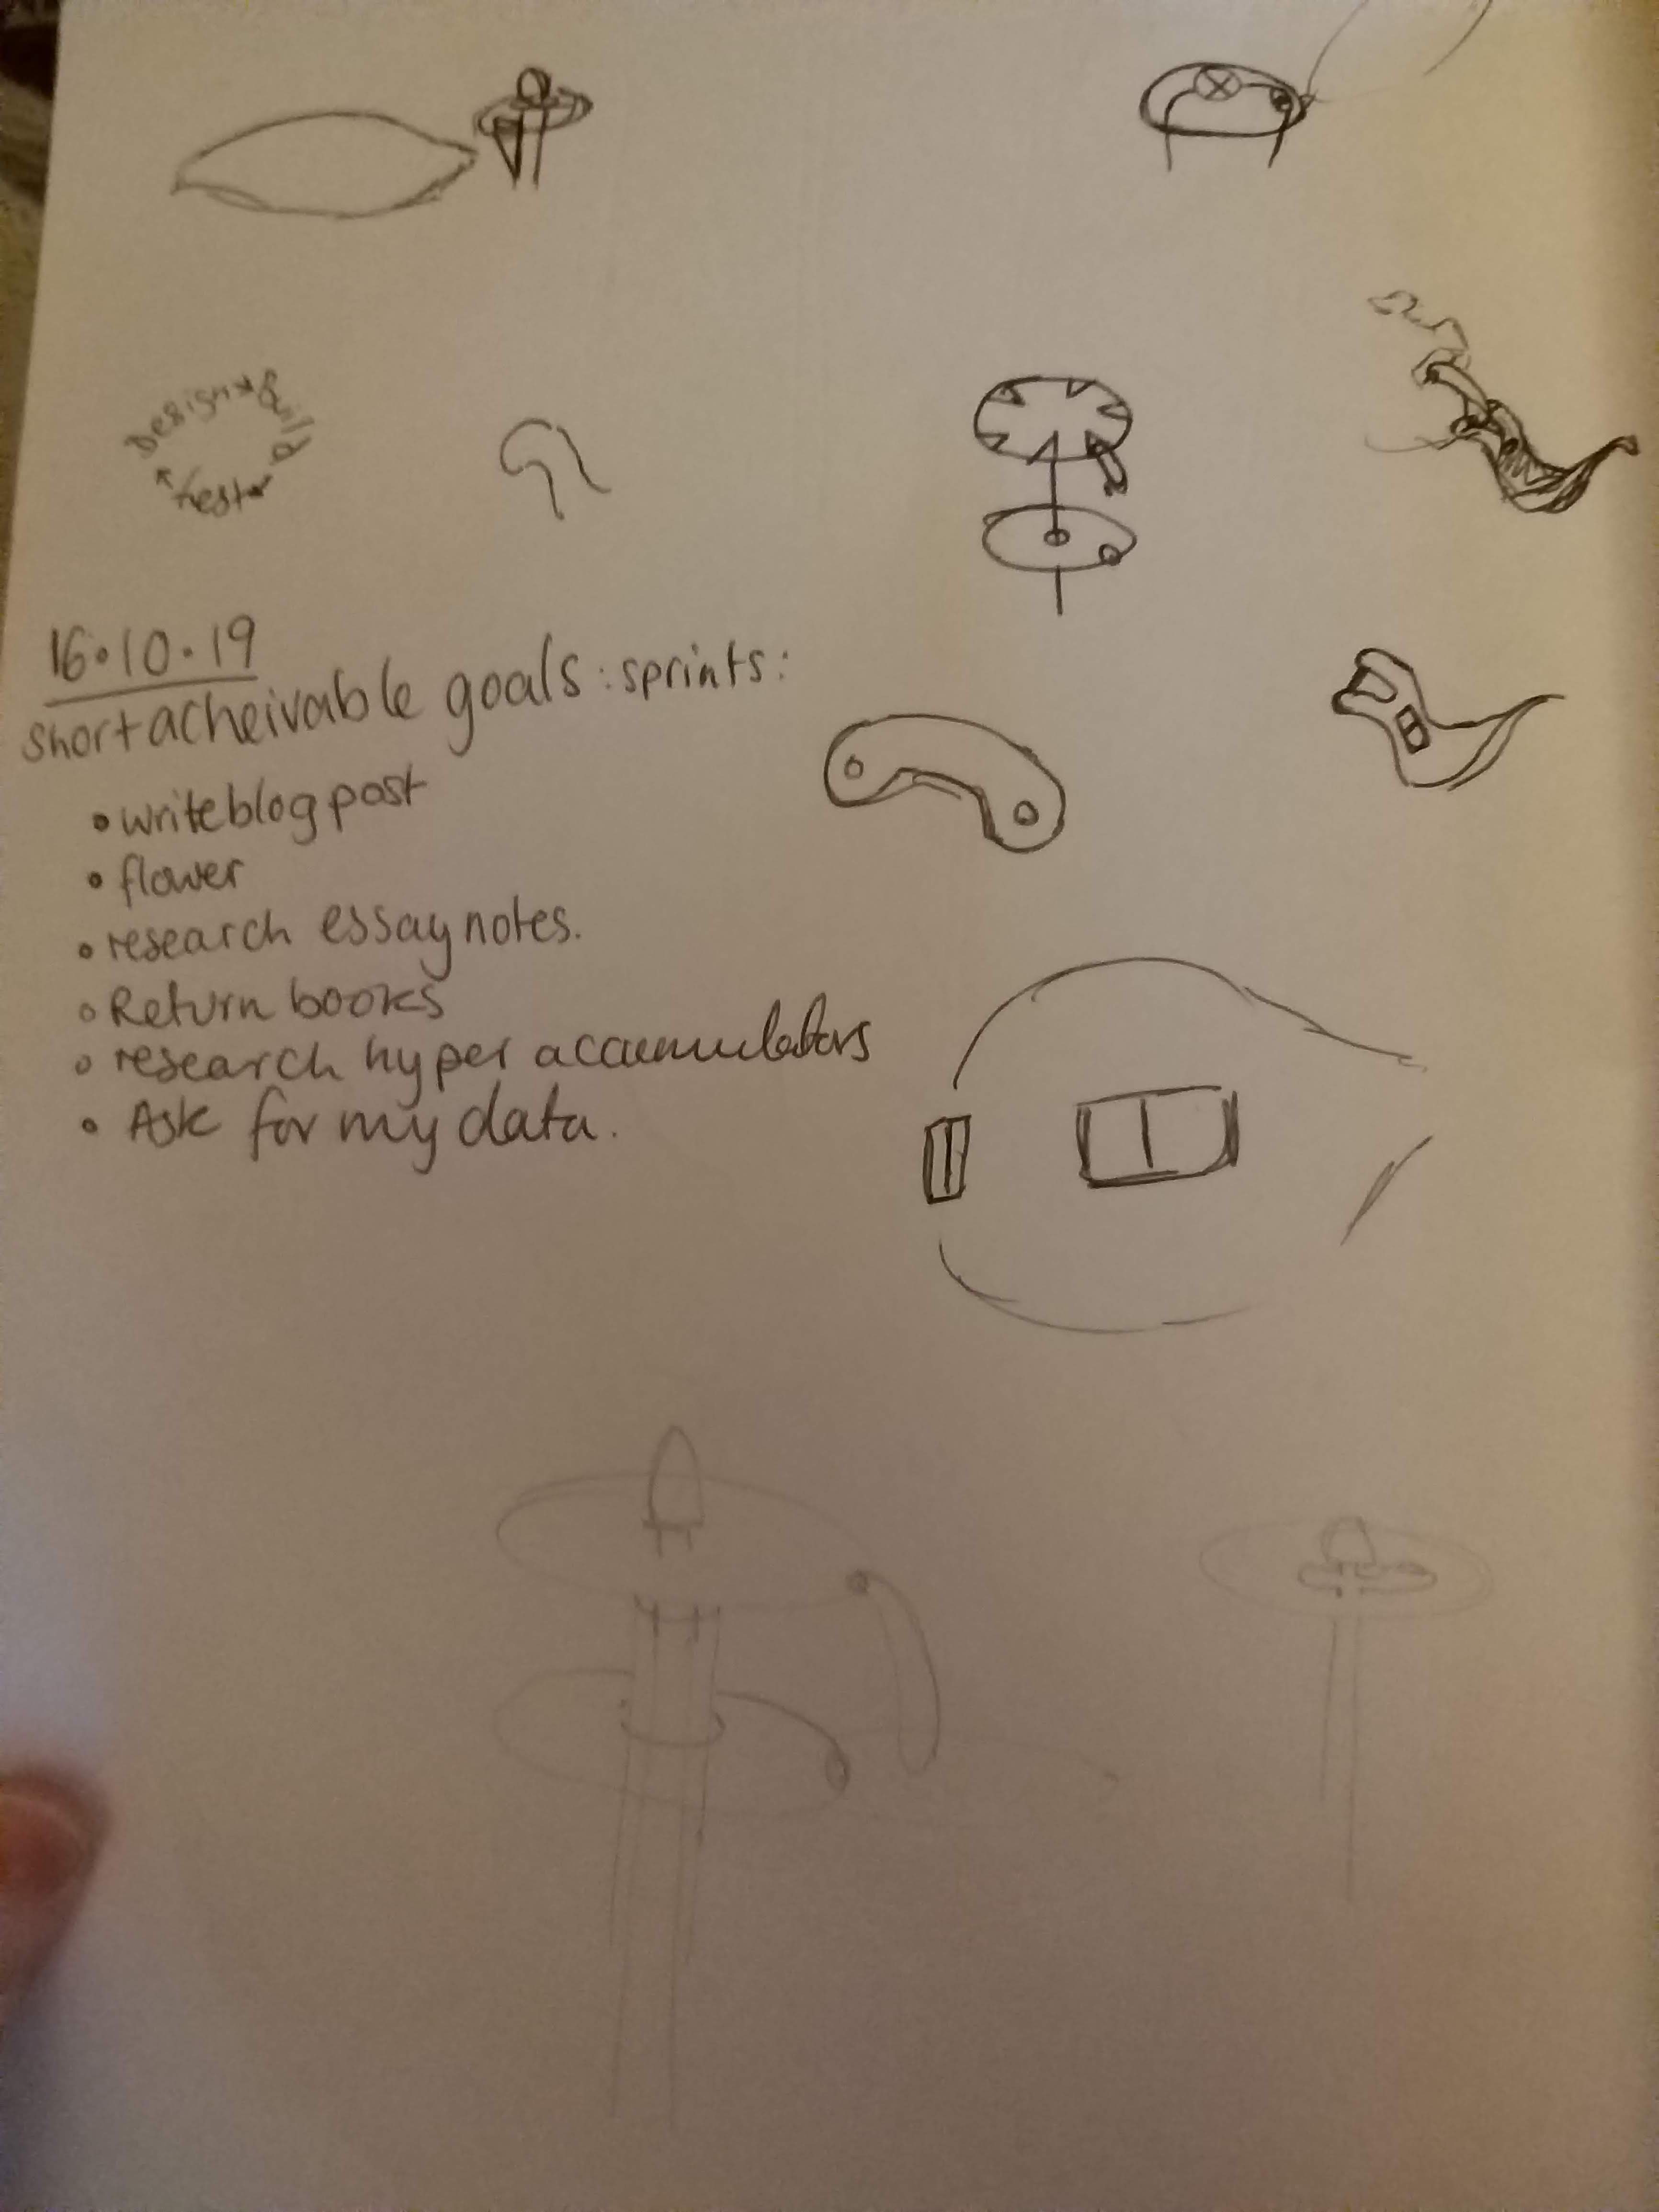 Design
Build
test
16.10.19
short acheivable goals: sprints:
• write blog post
• flower
• research essay notes.
• Return books
• research hyper accumulators
• Ask for my data.